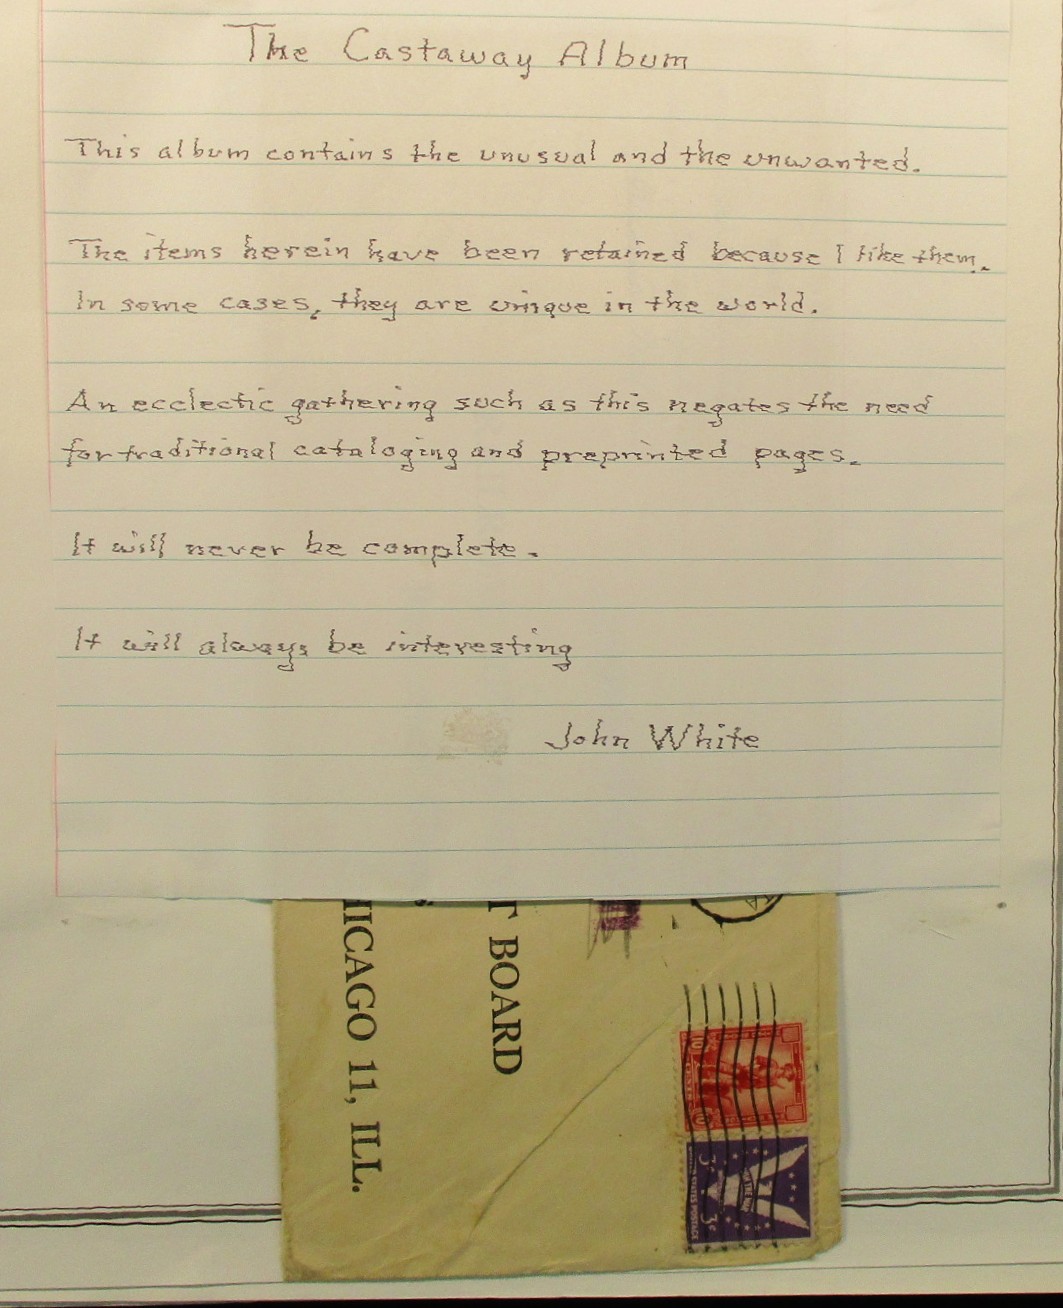 The Castaway Album
This album contains the unusual and the unwanted.
The items herein have been retained because I like them.
In some cases, they are unique in the world.
An ecclectic gathering such as this negates the need
for traditional cataloging and preprinted pages.
It will never be complete.
It will always be interesting
John White
T BOARD
HICAGO 11, ILL.
10 CENTS 10
3¢ 3¢
UNITED STATES POSTAGE